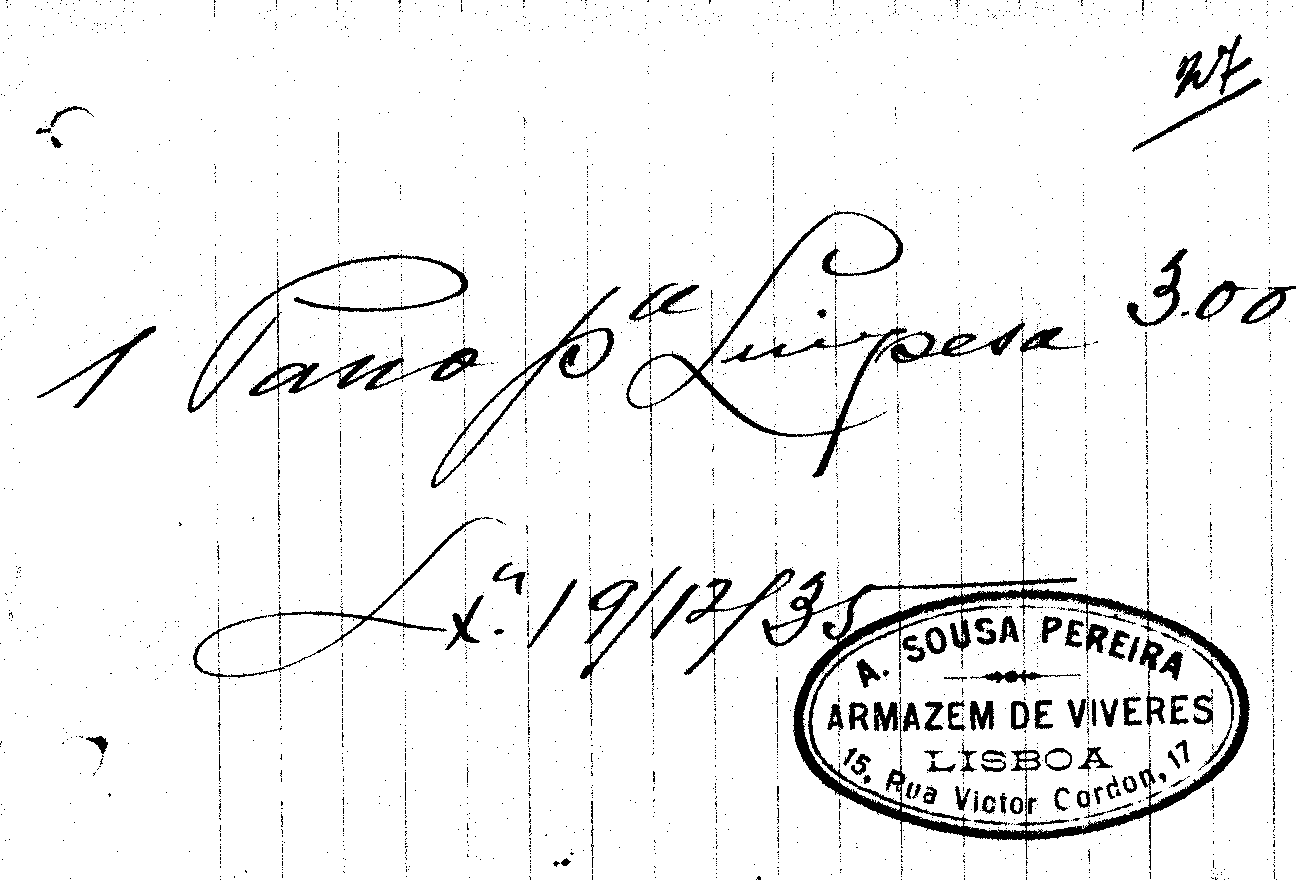 27
1 Pano pª Limpesa 3.00
Lxª. 19/12/35
A. SOUSA PEREIRA
ARMAZEM DE VIVERES
LISBOA
15, Rua Victor Cordon, 17